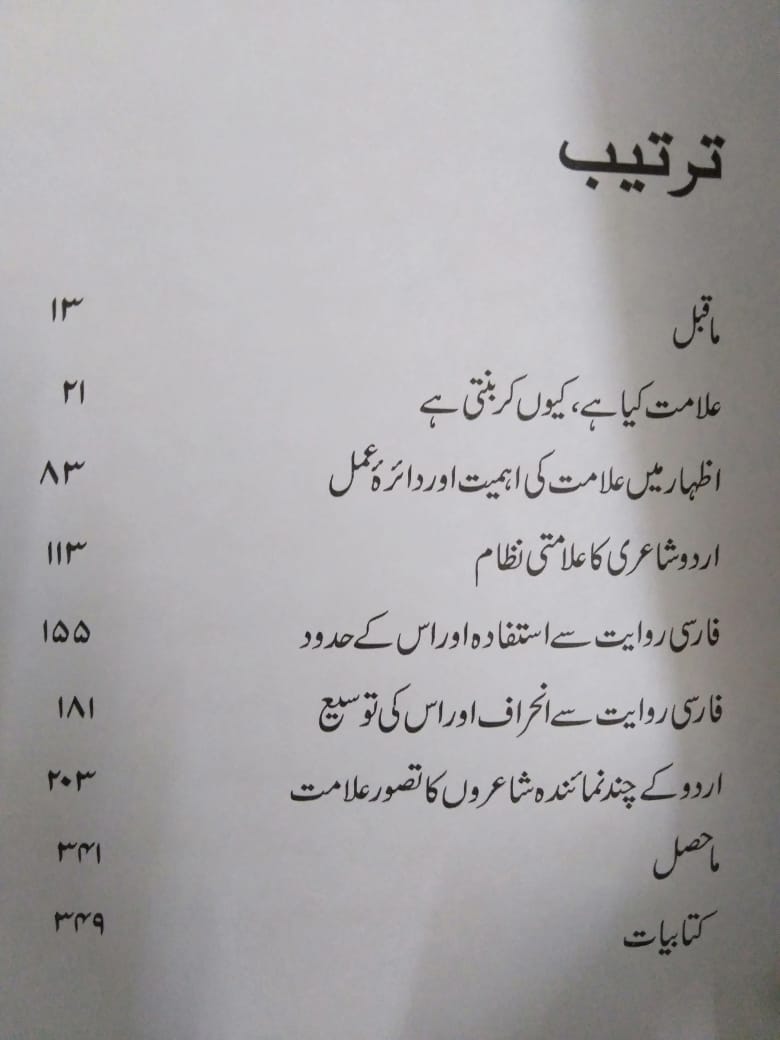 ترتیب
ماقبل ۱۳
علامت کیا ہے، کیوں کر بنتی ہے ۲۱
اظہار میں علامت کی اہمیت اور دائرۂ عمل ۸۳
اردو شاعری کا علامتی نظام ۱۱۳
فارسی روایت سے استفادہ اور اس کے حدود ۱۵۵
فارسی روایت سے انحراف اور اس کی توسیع ۱۸۱
اردو کے چند نمائندہ شاعروں کا تصور علامت ۲۰۳
ماحصل ۳۴۱
کتابیات ۳۴۹